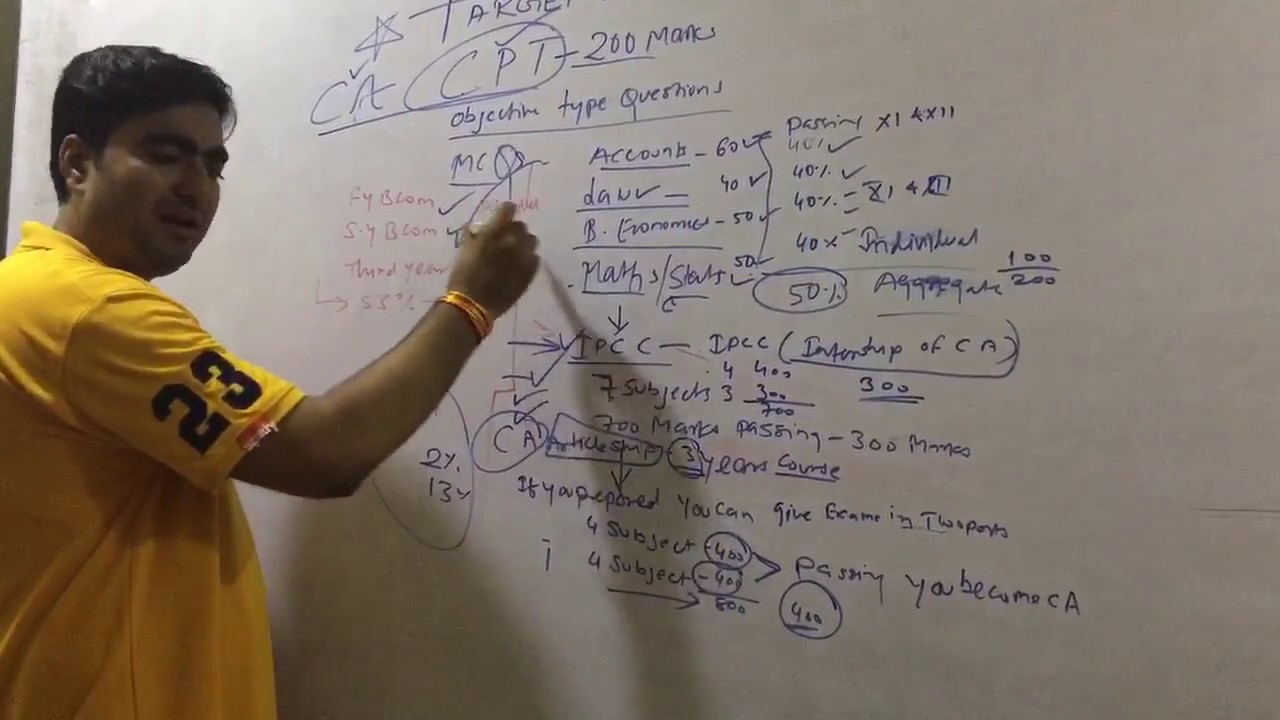 TARGET
CA CPT - 200 Marks
Objective type Questions
MCQ
Accounts - 60
Law - 40
B. Economics - 50
Maths/Stats 50
Passing XI & XII
40%
40%
40% = XI & XII
40% - Individual
50% Aggregate 100/200
Fy Bcom
S.y Bcom
Third year
53%
IPCC - IPCC (Intership of CA)
7 Subjects
4 400
3 300
700
300
700 Marks passing - 300 Marks
CA Articleship - 3 years Course
2%
13
If you prepared you can give Exame in Two parts
4 Subject - 400
4 Subject - 400
800
Passing you become CA
400
23